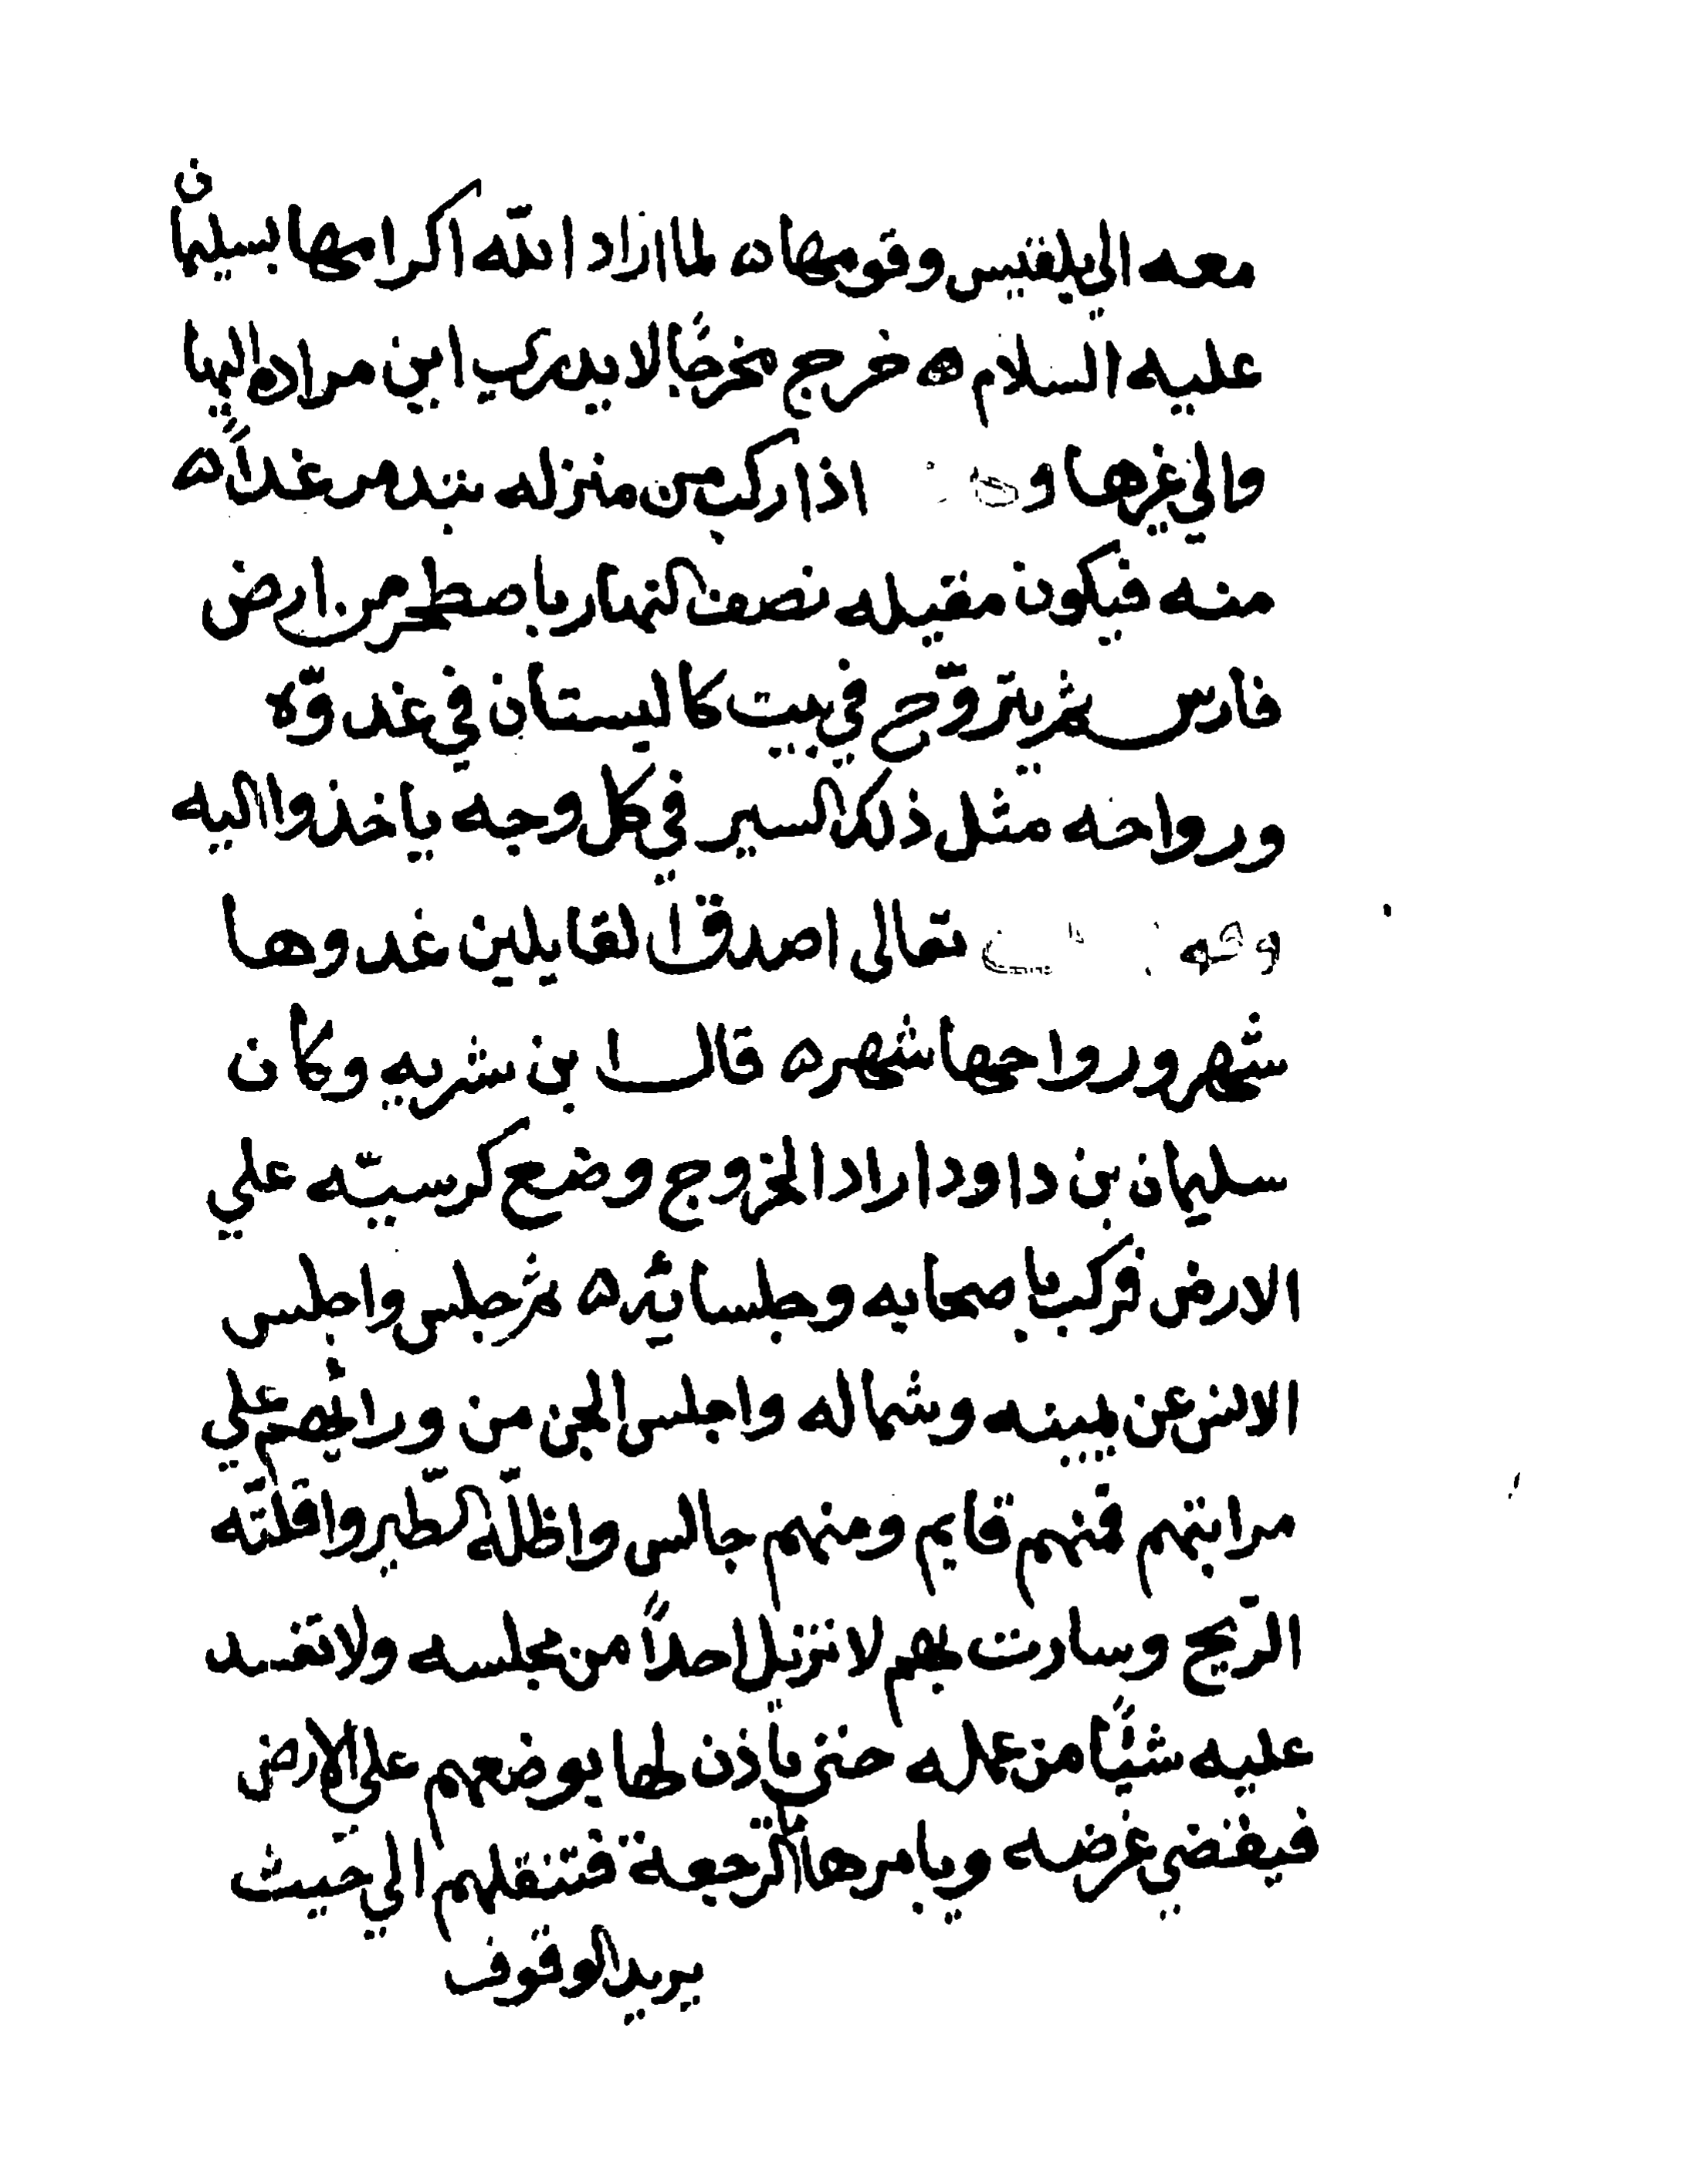 معه الي بلقيس وقومها ه لما اراد الله اكرامها بسليمان
عليه السلام ه خرج مخرجًا لا يدري اين مراده اليها
والي غيرها و اذا ركب من منزله بتدمر غداً ه
منه فيكون مقيله نصف النهار باصطخر من ارض
فارس ثم يتروّح في بيت كاليستان في غدوّه
ورواحه مثل ذلك السير في كل وجه ياخذوا اليه
تعالى اصدق القايلين غدوها
شهر ورواحها شهر ه قال ابن شريه وكان
سليمان بن داود اراد الخروج وضع كرسيّه علي
الارض فركب باصحابه وجلسائه ه ثم جلس واجلس
الانس عن يمينه وشماله واجلس الجن من ورائهم علي
مراتبهم فمنهم قايم ومنهم جالس واظلّه الطّير واقلّته
الرّيح وسارت بهم لا تزيل احداً من مجلسه ولا تفسد
عليه شيئًا من عمله حتى ياذن لها بوضعهم على الارض
فيقضي غرضه ويامرها الرّجعة فتنقلهم الي حيث
يريد الوقوف